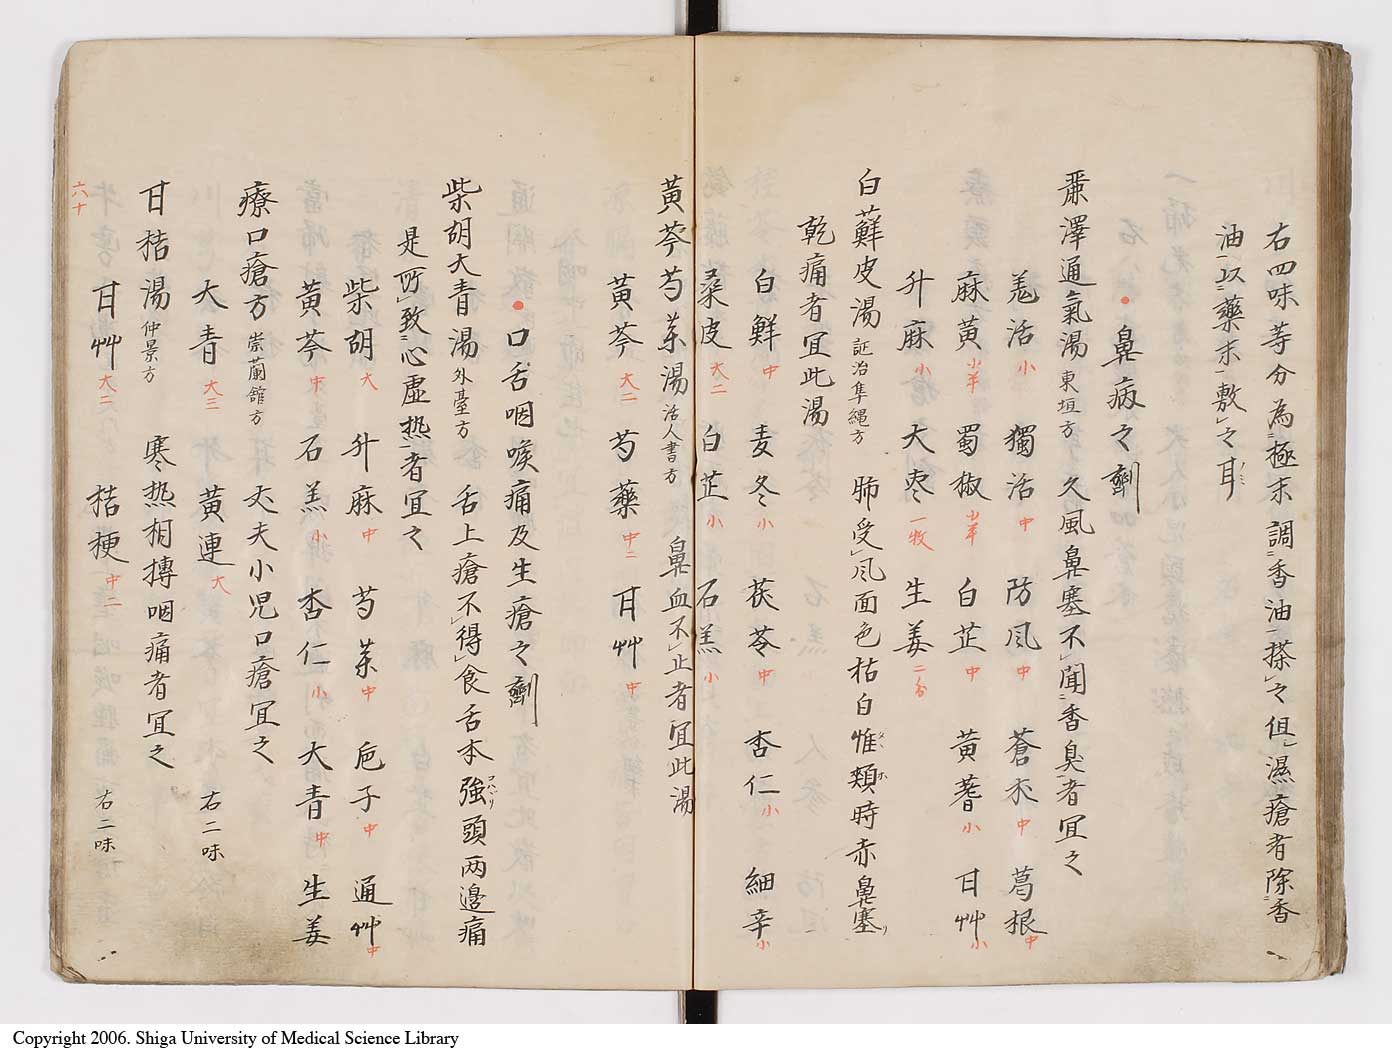 右四味等分為極末調香油搽之但濕瘡者除香
油以藥末敷之耳
鼻病之劑
麗澤通氣湯 東垣方 久風鼻塞不聞香臭者宜之
羗活 小 獨活 中 防风 中 蒼朮 中 葛根 中
麻黄 小半 蜀椒 小半 白芷 中 黄蓍 小 甘艸 小
升麻 小 大枣 一枚 生姜 二分
白蘚皮湯 証治隼繩方 肺受风面色枯白惟頬時赤鼻塞
乾痛者宜此湯
白鮮 中 麦冬 小 茯苓 中 杏仁 小 細辛 小
桑皮 大二 白芷 小 石羔 小
黄芩芍藥湯 活人書方 鼻血不止者宜此湯
黄芩 大二 芍藥 中二 甘艸 中
口舌咽喉痛及生瘡之劑
柴胡大青湯 外臺方 舌上瘡不得食舌本強頭两邊痛
是所致心虚热者宜之
柴胡 大 升麻 中 芍藥 中 巵子 中 通艸 中
黄芩 中 石羔 小 杏仁 小 大青 中 生姜
療口瘡方 崇蘭館方 大夫小児口瘡宜之
大青 大三 黄連 大 右二味
甘桔湯 仲景方 寒热相搏咽痛者宜之
甘艸 大二 桔梗 中二 右二味
六十
Copyright 2006. Shiga University of Medical Science Library